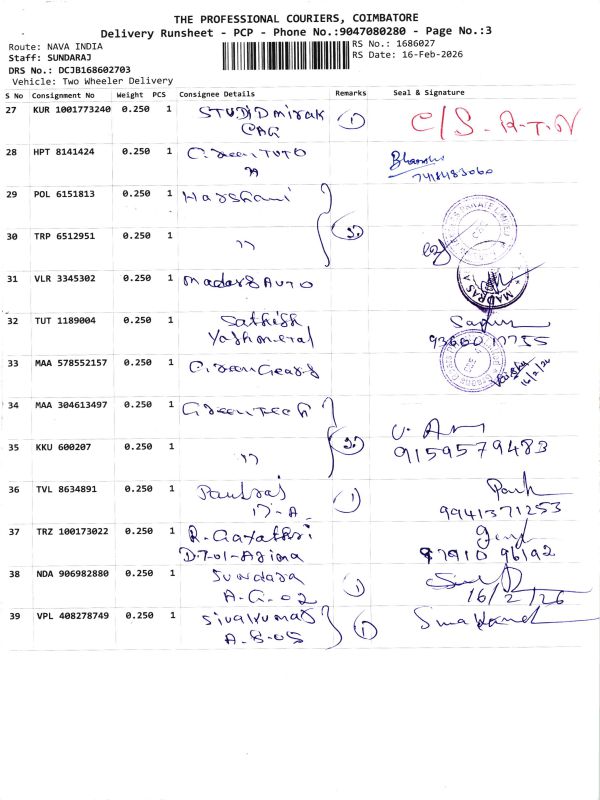 THE PROFESSIONAL COURIERS, COIMBATORE
Delivery Runsheet - PCP - Phone No.:9047080280 - Page No.:3
Route: NAVA INDIA
RS No.: 1686027
Staff: SUNDARAJ
RS Date: 16-Feb-2026
DRS No.: DCJB168602703
Vehicle: Two Wheeler Delivery
S No Consignment No Weight PCS Consignee Details Remarks Seal & Signature
27 KUR 1001773240 0.250 1 1 C/S-A-T-N
28 HPT 8141424 0.250 1
7418483060
29 POL 6151813 0.250 1 Harshani
30 TRP 6512951 0.250 1 "
31 VLR 3345302 0.250 1 Madras AUTO
MADRAS
32 TUT 1189004 0.250 1 Sathish
33 MAA 578552157 0.250 1 Green Gears
16/2/26
34 MAA 304613497 0.250 1 Green Tech
35 KKU 600207 0.250 1 " 2. 9159579483
36 TVL 8634891 0.250 1 Paulraj 1
17-A 9941371253
37 TRZ 100173022 0.250 1 R. Gayathri
D-701-Azima 97910 96192
38 NDA 906982880 0.250 1 Sundara 1
A-G-02 16/2/26
39 VPL 408278749 0.250 1 Sivakumar 1
A-8-05